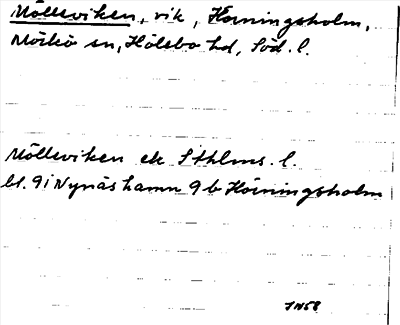 Mölleviken, vik, Hörningsholm,
Mörkö sn, Hölebo hd, Söd. l.
Mölleviken ek Sthlms. l.
bl. 9i Nynäshamn 9b Hörningsholm
JN58